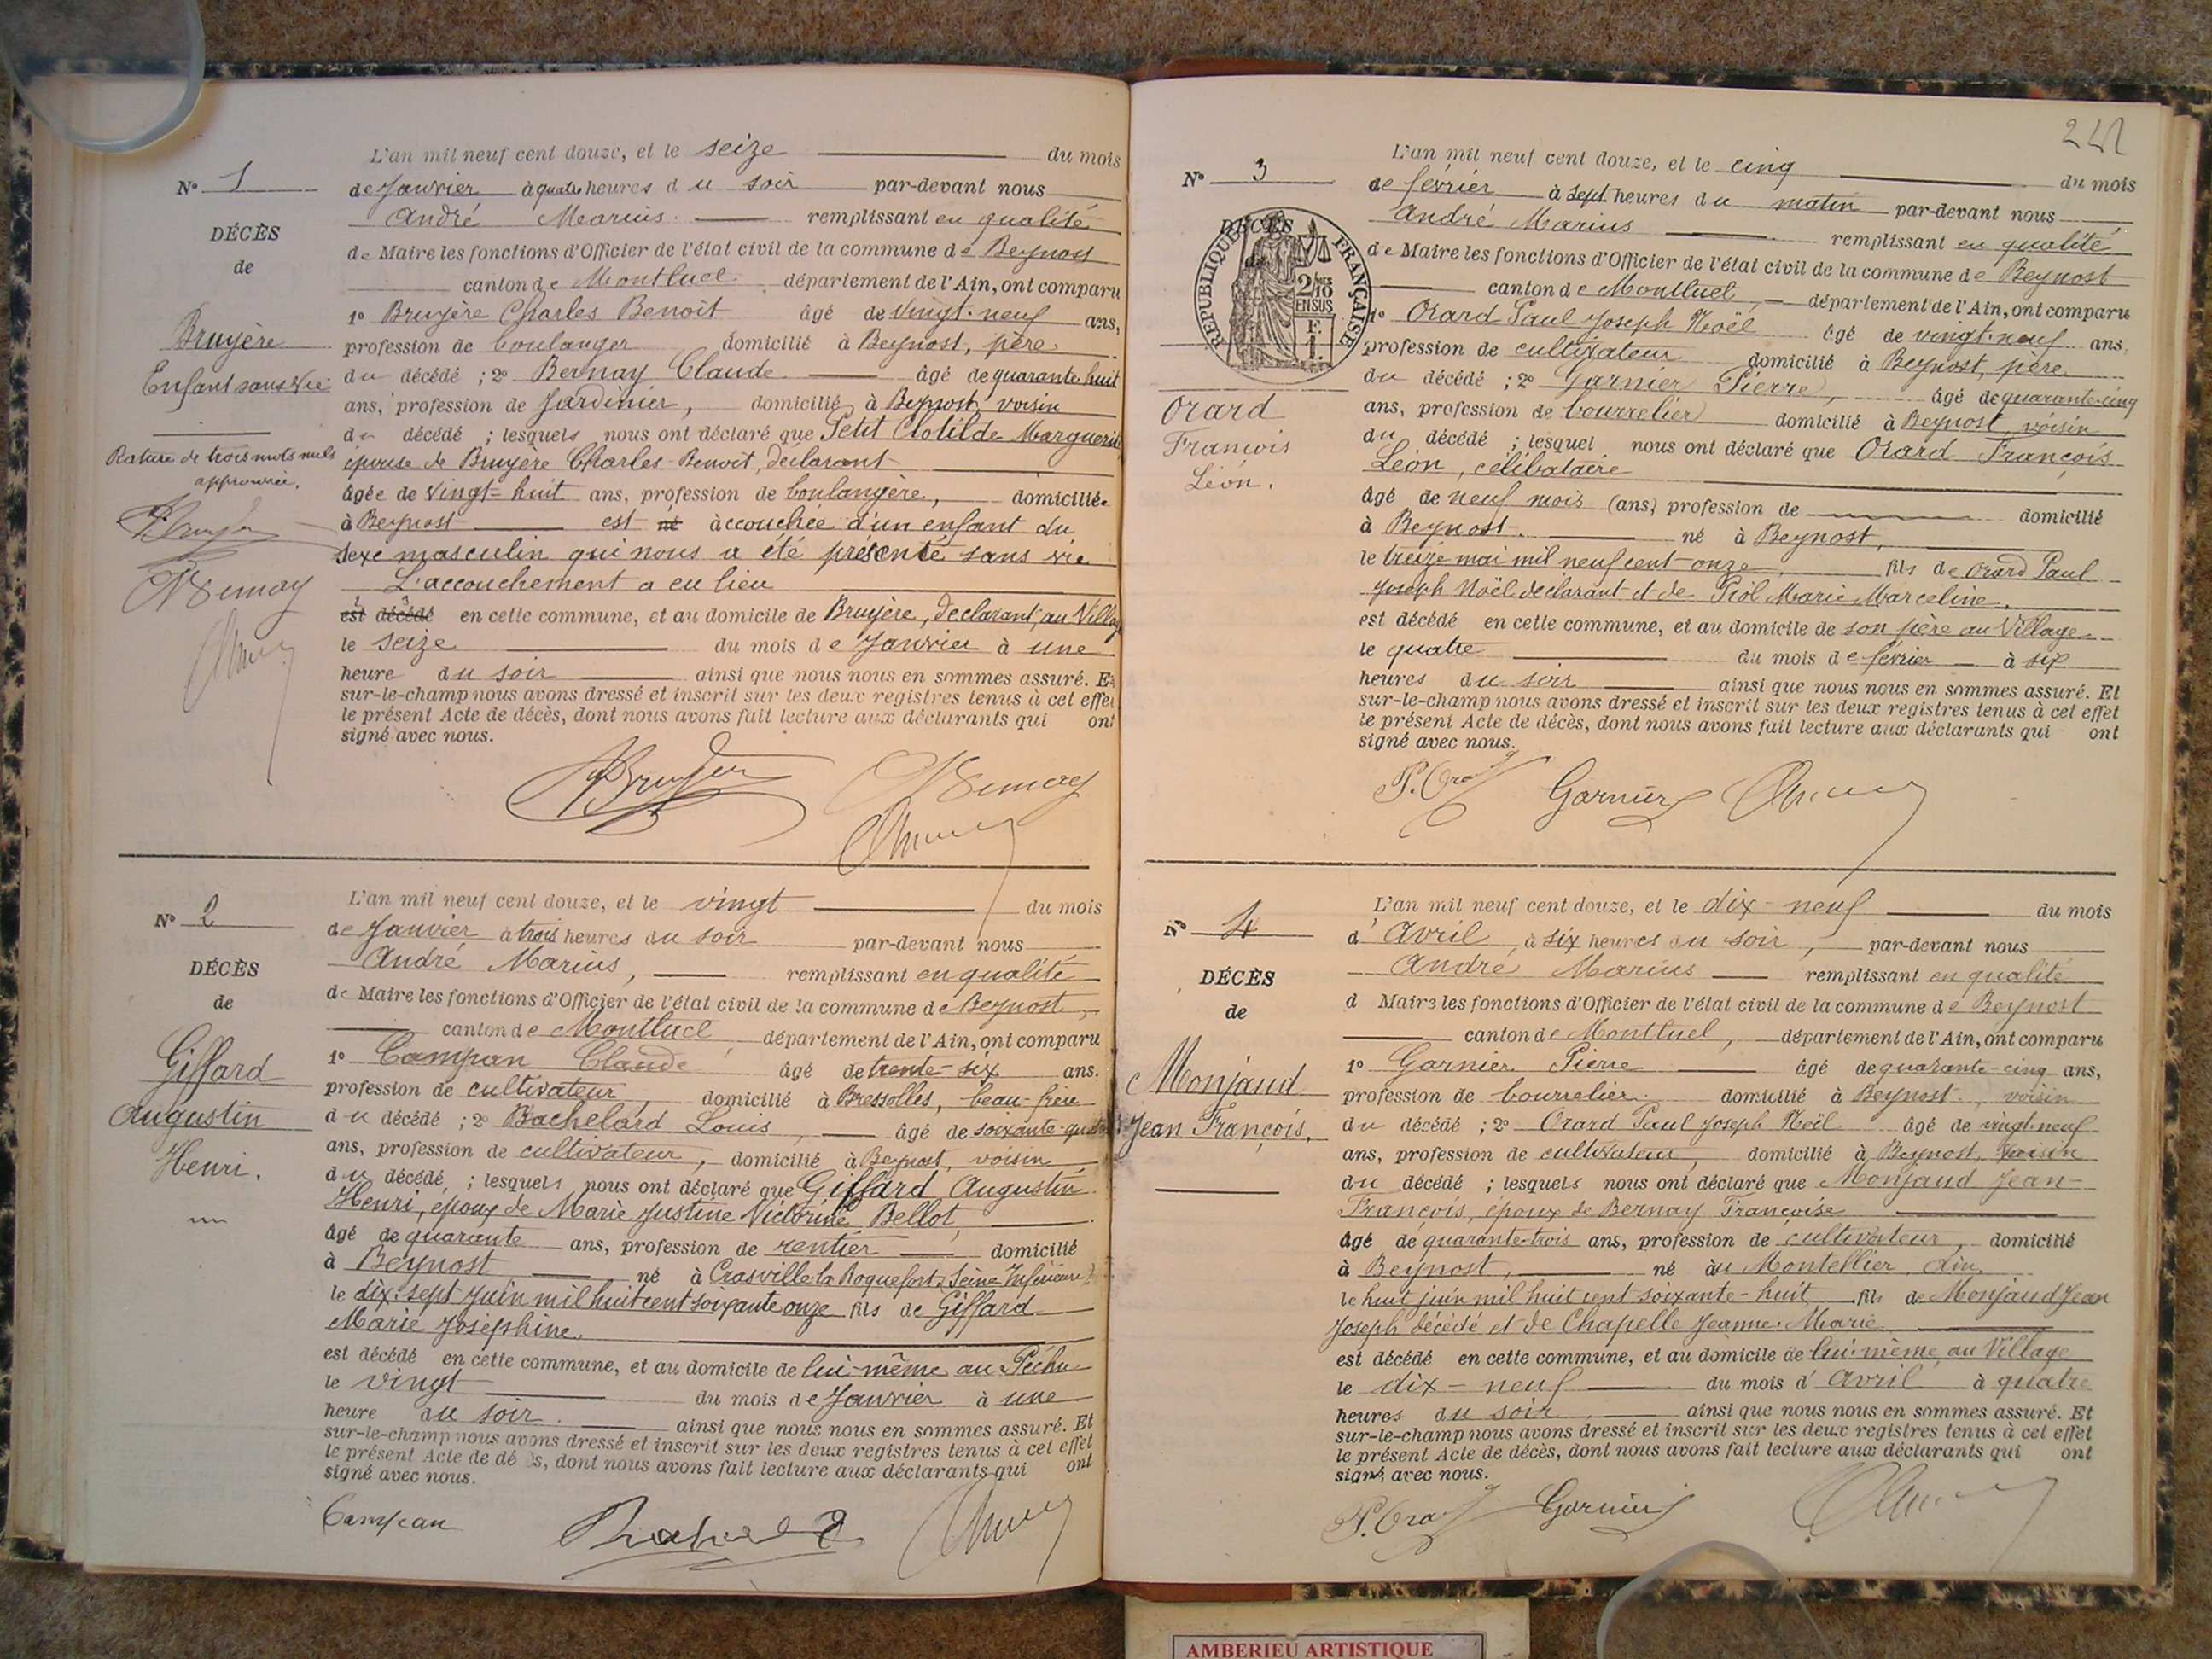 N° 1
DÉCÈS
de
Bruyère
Enfant sans vie
Rature de trois mots nuls
approuvée.
L'an mil neuf cent douze, et le seize du mois
de Janvier à quatre heures du soir par-devant nous
André Marius. remplissant en qualité
de Maire les fonctions d'Officier de l'état civil de la commune de Beynost
canton de Montluel département de l'Ain, ont comparu
1° Bruyère Charles Benoit âgé de vingt-neuf ans,
profession de boulanger domicilié à Beynost, père
du décédé ; 2° Bernay Claude âgé de quarante huit
ans, profession de Jardinier, domicilié à Beynost, voisin
du décédé ; lesquels nous ont déclaré que Petit Clotilde Marguerite
épouse de Bruyère Charles Benoit, déclarant
âgée de vingt-huit ans, profession de boulangère, domiciliée
à Beynost est né accouchée d'un enfant du
sexe masculin qui nous a été présenté sans vie
L'accouchement a eu lieu
est décédé en cette commune, et au domicile de Bruyère, déclarant, au Village
le seize du mois de Janvier à une
heure du soir ainsi que nous nous en sommes assuré. Et
sur-le-champ nous avons dressé et inscrit sur les deux registres tenus à cet effet
le présent Acte de décès, dont nous avons fait lecture aux déclarants qui ont
signé avec nous.
N° 2
DÉCÈS
de
Giffard
Augustin
Henri.
L'an mil neuf cent douze, et le vingt du mois
de Janvier à trois heures du soir par-devant nous
André Marius, remplissant en qualité
de Maire les fonctions d'Officier de l'état civil de la commune de Beynost,
canton de Montluel département de l'Ain, ont comparu
1° Campan Claude âgé de trente-six ans.
profession de cultivateur, domicilié à Bressolles, beau-frère
du décédé ; 2° Bachelard Louis, âgé de soixante-quatre
ans, profession de cultivateur, domicilié à Beynost, voisin
du décédé ; lesquels nous ont déclaré que Giffard Augustin
Henri, époux de Marie Justine Victorine Bellot,
âgé de quarante ans, profession de rentier domicilié
à Beynost né à Crasville la Roquefort, Seine Inférieure,
le dix-sept juin mil huit cent soixante onze fils de Giffard
Marie Joséphine.
est décédé en cette commune, et au domicile de lui-même au Péchu
le vingt du mois de Janvier à une
heure du soir. ainsi que nous nous en sommes assuré. Et
sur-le-champ nous avons dressé et inscrit sur les deux registres tenus à cet effet
le présent Acte de dé s, dont nous avons fait lecture aux déclarants qui ont
signé avec nous.
Campan
242
N° 3
DÉCÈS
REPUBLIQUE FRANÇAISE
2/10
EN SUS
Orard
François
Léon.
L'an mil neuf cent douze, et le cinq du mois
de février à sept heures du matin par-devant nous
André Marius remplissant en qualité
de Maire les fonctions d'Officier de l'état civil de la commune de Beynost
canton de Montluel, département de l'Ain, ont comparu
1° Orard Paul Joseph Noël âgé de vingt-neuf ans
profession de cultivateur domicilié à Beynost, père
du décédé ; 2° Garnier Pierre, âgé de quarante-cinq
ans, profession de bourrelier domicilié à Beynost, voisin
du décédé ; lesquel nous ont déclaré que Orard François
Léon, célibataire
âgé de neuf mois (ans) profession de domicilié
à Beynost. né à Beynost,
le treize mai mil neuf cent onze, fils de Orard Paul
Joseph Noël déclarant et de Piol Marie Marceline.
est décédé en cette commune, et au domicile de son père au Village
le quatre du mois de février à six
heures du soir ainsi que nous nous en sommes assuré. Et
sur-le-champ nous avons dressé et inscrit sur les deux registres tenus à cet effet
le présent Acte de décès, dont nous avons fait lecture aux déclarants qui ont
signé avec nous.
Garnier
N° 4
DÉCÈS
de
Monjaud
Jean François.
L'an mil neuf cent douze, et le dix-neuf du mois
d'Avril, à six heures du soir, par-devant nous
André Marius remplissant en qualité
d Maire les fonctions d'Officier de l'état civil de la commune de Beynost
canton de Montluel, département de l'Ain, ont comparu
1° Garnier Pierre âgé de quarante-cinq ans,
profession de bourrelier domicilié à Beynost, voisin
du décédé ; 2° Orard Paul Joseph Noël âgé de vingt-neuf
ans, profession de cultivateur, domicilié à Beynost, voisin
du décédé ; lesquels nous ont déclaré que Monjaud Jean-
François, époux de Bernay Françoise
âgé de quarante-trois ans, profession de cultivateur, domicilié
à Beynost, né au Montellier, Ain,
le huit juin mil huit cent soixante-huit fils de Monjaud Jean
Joseph décédé et de Chapelle Jeanne-Marie
est décédé en cette commune, et au domicile de lui-même, au Village
le dix-neuf du mois d'avril à quatre
heures du soir ainsi que nous nous en sommes assuré. Et
sur-le-champ nous avons dressé et inscrit sur les deux registres tenus à cet effet
le présent Acte de décès, dont nous avons fait lecture aux déclarants qui ont
signé avec nous.
Garnier
AMBERIEU ARTISTIQUE